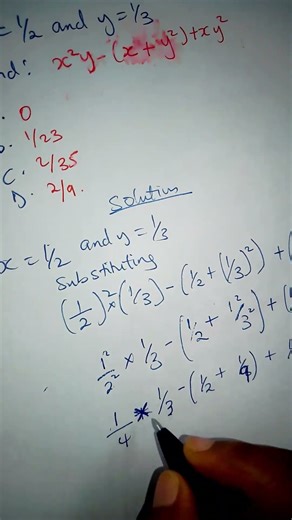 = 1/2 and y = 1/3
nd: x²y - (x + y²) + xy²
. 0
. 1/23
C. 2/35
D. 2/9.
Solution
x = 1/2 and y = 1/3
Substituting
(1/2)² × (1/3) - (1/2 + (1/3)²) + (
1²/2² × 1/3 - (1/2 + 1²/3²) + (
1/4 * 1/3 - (1/2 + 1/9) +